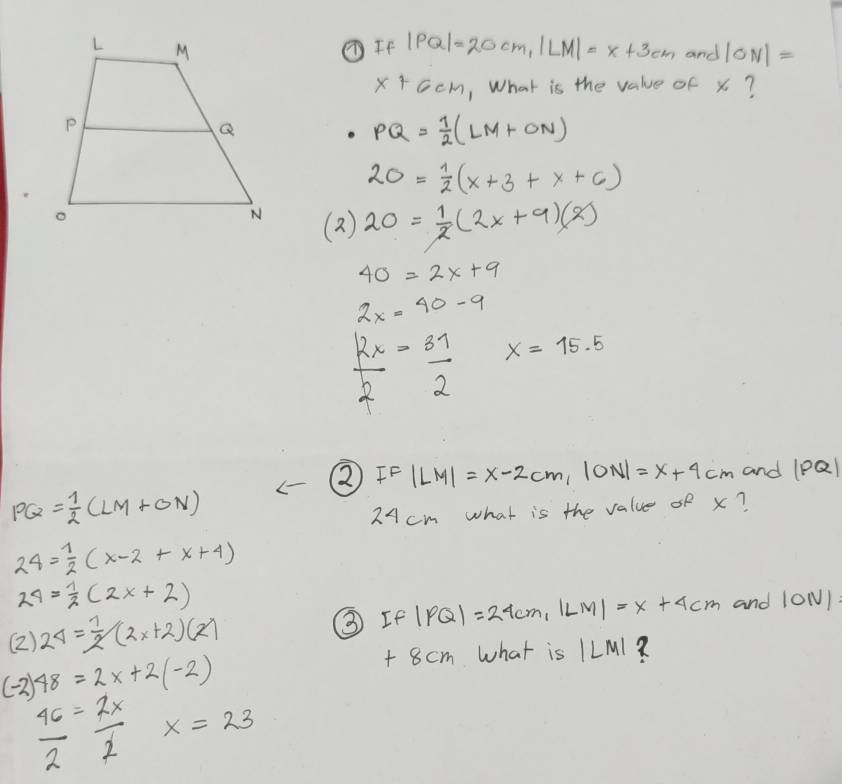 L M
P Q
O N
① If |PQ|=20cm, |LM| = x+3cm and |ON| =
x + 6cm, What is the value of x?
• PQ = 1/2(LM+ON)
20 = 1/2(x+3 + x+6)
(2)20 = 1/2(2x+9)(2)
40 = 2x+9
2x = 40-9
2x/2 = 31/2 x = 15.5
← ② IF |LM| = x-2cm, |ON| = x+4cm and |PQ|
24cm what is the value of x?
PQ = 1/2(LM+ON)
24 = 1/2(x-2 + x+4)
24 = 1/2(2x+2)
(2)24 = 1/2(2x+2)(2)
(-2)48 = 2x+2(-2)
46/2 = 2x/2 x = 23
③ If |PQ| = 24cm, |LM| = x +4cm and |ON| =
+ 8cm What is |LM|?